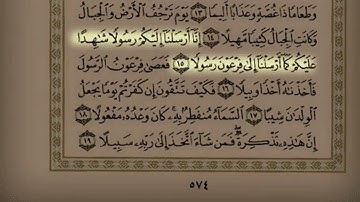 وَطَعَامًا ذَا غُصَّةٍ وَعَذَابًا أَلِيمًا ١٣ يَوْمَ تَرْجُفُ ٱلْأَرْضُ وَٱلْجِبَالُ
وَكَانَتِ ٱلْجِبَالُ كَثِيبًا مَّهِيلًا ١٤ إِنَّآ أَرْسَلْنَآ إِلَيْكُمْ رَسُولًا شَٰهِدًا
عَلَيْكُمْ كَمَآ أَرْسَلْنَآ إِلَىٰ فِرْعَوْنَ رَسُولًا ١٥ فَعَصَىٰ فِرْعَوْنُ ٱلرَّسُولَ
فَأَخَذْنَٰهُ أَخْذًا وَبِيلًا ١٦ فَكَيْفَ تَتَّقُونَ إِن كَفَرْتُمْ يَوْمًا يَجْعَلُ
ٱلْوِلْدَٰنَ شِيبًا ١٧ ٱلسَّمَآءُ مُنفَطِرٌۢ بِهِۦ ۚ كَانَ وَعْدُهُۥ مَفْعُولًا ١٨
إِنَّ هَٰذِهِۦ تَذْكِرَةٌ ۖ فَمَن شَآءَ ٱتَّخَذَ إِلَىٰ رَبِّهِۦ سَبِيلًا ١٩
٥٧٤